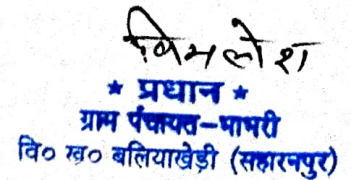 विमलेश
* प्रधान *
ग्राम पंचायत-भाभरी
वि० ख० बलियाखेड़ी (सहारनपुर)